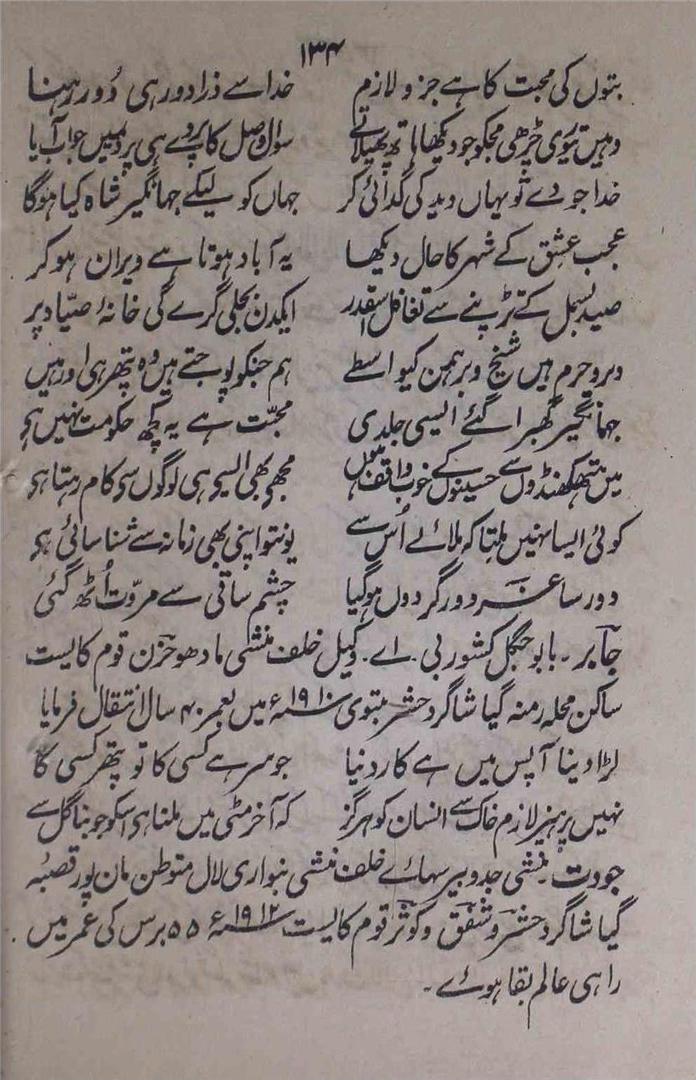 ۱۳۴
بتوں کی محبت کا ہے جزو لازم خدا سے ذرا دور ہی دُور رہنا
وہیں تیوری چڑھی مجکو جو دیکھا ہاتھ پھیلاتے سوال وصل کا پردے ہی پردہ میں جواب آیا
خدا جو دے تو یہاں دید کی گدائی کر جہاں کو لیکے جہانگیر شاہ کیا ہوگا
عجب عشق کے شہر کا حال دیکھا یہ آباد ہوتا ہے ویران ہو کر
صید بسمل کے تڑپنے سے تغافل اسقدر ایکدن بجلی گرے گی خانۂ صیّاد پر
دیر و حرم ہیں شیخ و برہمن کیواسطے ہم جنکو پوجتے ہیں وہ پتھر ہی اور ہیں
جہانگیر گھبرا گئے ایسی جلدی محبّت ہے یہ کچھ حکومت نہیں ہی
میں ہتھکھنڈوں سے حسینوں کے خوب واقف ہوں مجھو بھی ایسو ہی لوگوں سو کام رہتا ہی
کوئی ایسا نہیں ملتا کہ ملائے اُس سے یونتو اپنی بھی زمانہ سے شناسائی ہی
دور ساغر دور گردوں ہو گیا چشم ساقی سے مروّت اُٹھ گئی
جابر۔ بابو جگل کشور بی۔ اے۔ وکیل خلف منشی مادھو حزن قوم کایست
ساکن محلہ رمنہ گیا شاگرد حشر مبتوی ۱۹۱۰ء میں بعمر ۴۰ سال انتقال فرمایا
لڑا دینا آپس میں ہے کار دنیا جو سر ہے کسی کا تو پتھر کسی کا
نہیں پرہیز لازم خاک سے انسان کو ہرگز کہ آخر مٹی میں ملنا ہی اسکو جو بنا گل سے
جودت۔ منشی جدوبیر سہائے خلف منشی بنواری لال متوطن مان پور قصبہ
گیا شاگرد حشر و شفق و کوثر قوم کایست ۱۹۱۲ء ۵۵ برس کی عمر میں
راہی عالم بقا ہوئے۔